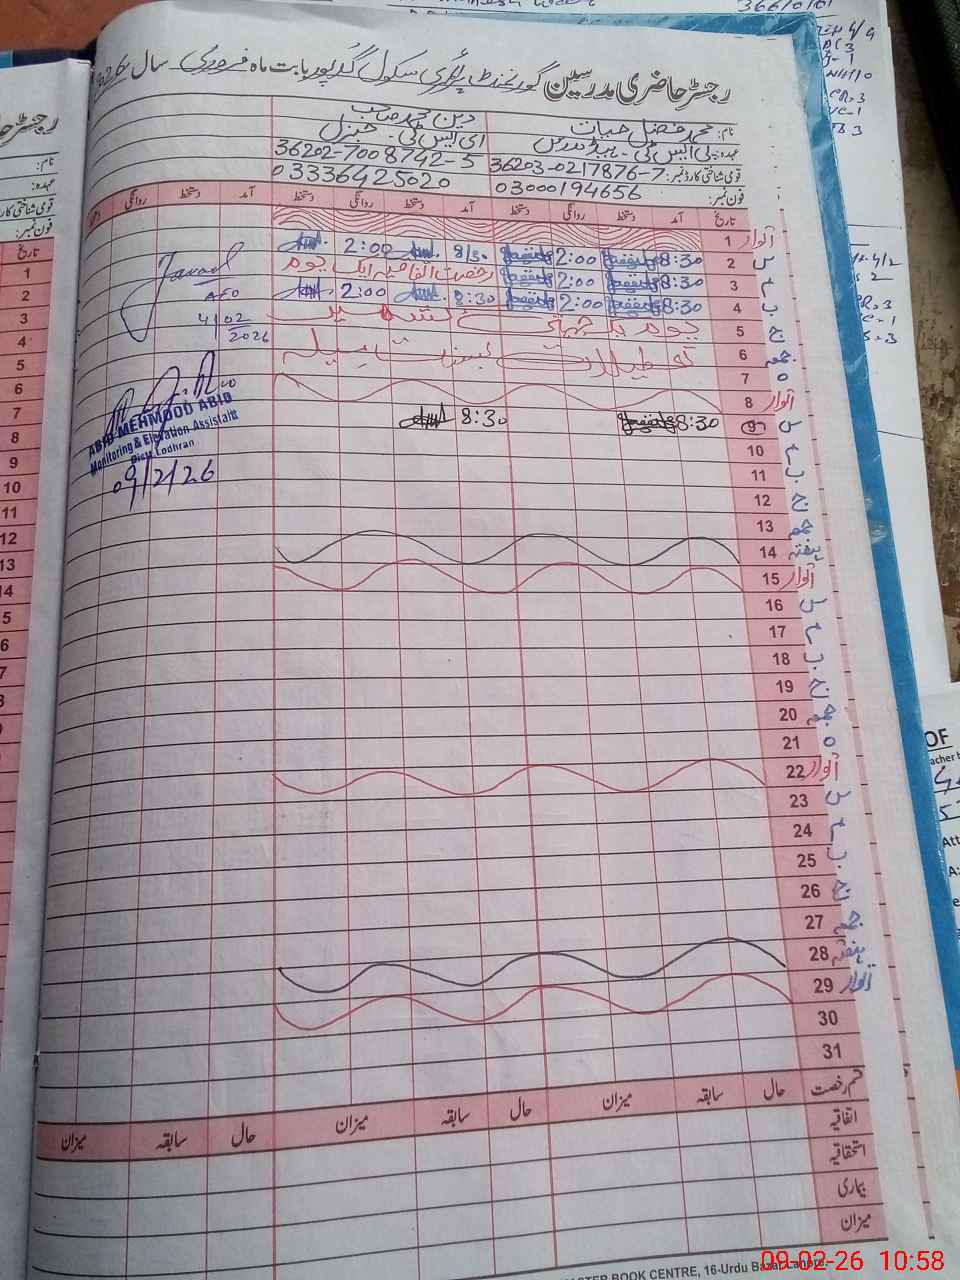 رجسٹر حاضری مدرسین گورنمنٹ پرائمری سکول گدپور بابت ماہ فروری سال 2026
نام: محمد فضل حیات دین محمد صاحب
عہدہ: پی ایس ٹی - ہیڈ مدرس ای ایس ٹی - جنرل
قومی شناختی کارڈ نمبر: 36203-0217876-7 36202-7008742-5
فون نمبر: 03000194656 03336425020
تاریخ آمد دستخط روانگی دستخط آمد دستخط روانگی دستخط آمد دستخط روانگی
1 اتوار
2 س 8:30 2:00 8/30 2:00
3 8:30 2:00 رخصت اتفاقیہ ایک یوم
4 ب 8:30 2:00 8:30 2:00
5 ج یوم یکجہتی کشمیر
6 جمعہ تعطیلات بسنت میلہ
7 ہ
8 اتوار
9 س 8:30 8:30
10
11 ب
12 ج
13 جمعہ
14 ہفتہ
15 اتوار
16 س
17
18 ب
19 ج
20 جمعہ
21 ہ
22 اتوار
23 س
24
25 ب
26 ج
27 جمعہ
28 ہفتہ
29 اتوار
30
31
قسم رخصت حال سابقہ میزان حال سابقہ میزان حال سابقہ میزان
اتفاقیہ
استحقاقیہ
بیماری
میزان
Javaad
AEO
4/02
2026
ABID MEHMOOD ABID
Monitoring & Elevation Assistant
Distt Lodhran
09/2/26
BOOK CENTRE, 16-Urdu Bazar Lahore.
09-02-26 10:58